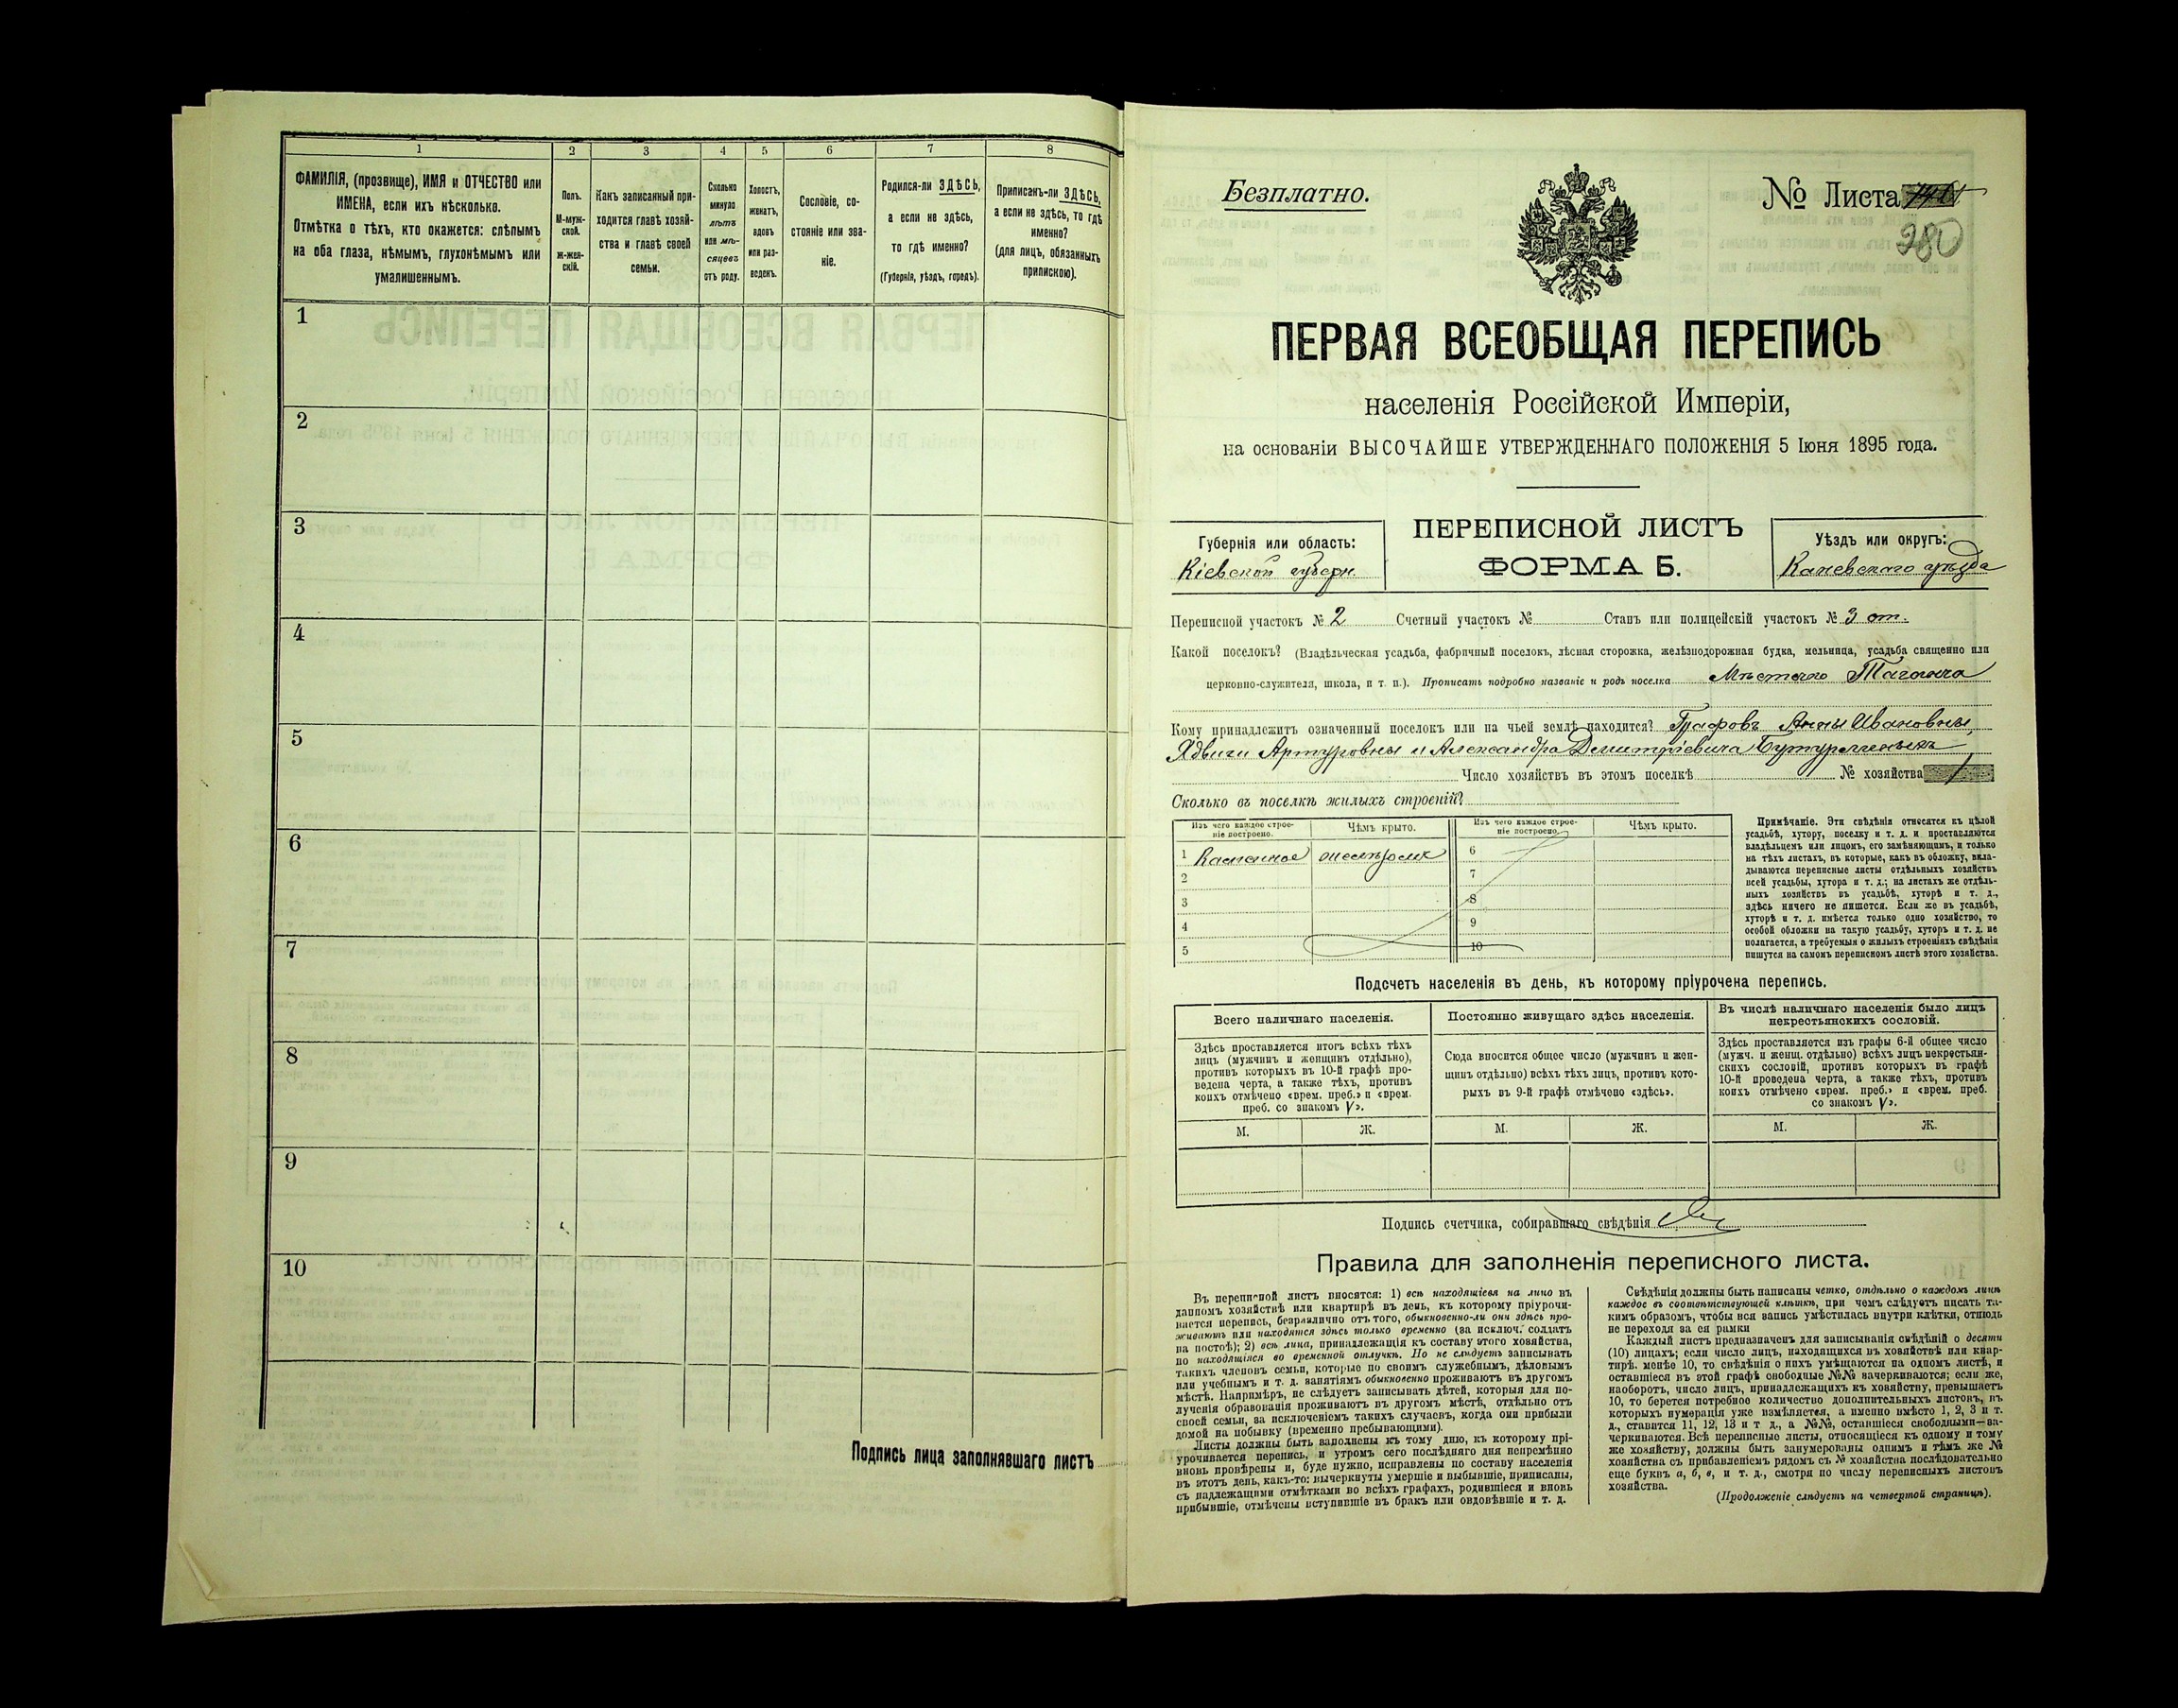 1 2 3 4 5 6 7 8
ФАМИЛІЯ, (прозвище), ИМЯ и ОТЧЕСТВО или
ИМЕНА, если ихъ нѣсколько.
Отмѣтка о тѣхъ, кто окажется: слѣпымъ
на оба глаза, нѣмымъ, глухонѣмымъ или
умалишеннымъ.
Полъ.
М-муж-
ской.
Ж-жен-
скій.
Какъ записанный при-
ходится главѣ хозяй-
ства и главѣ своей
семьи.
Сколько
минуло
лѣтъ
или мѣ-
сяцевъ
отъ роду.
Холостъ,
женатъ,
вдовъ
или раз-
веденъ.
Сословіе, со-
стояніе или зва-
ніе.
Родился-ли ЗДѢСЬ,
а если не здѣсь,
то гдѣ именно?
(Губернія, уѣздъ, городъ).
Приписанъ-ли ЗДѢСЬ,
а если не здѣсь, то гдѣ
именно?
(для лицъ, обязанныхъ
припискою).
1
2
3
4
5
6
7
8
9
10
Подпись лица заполнявшаго листъ
Безплатно.
№ Листа
280
ПЕРВАЯ ВСЕОБЩАЯ ПЕРЕПИСЬ
населенія Россійской Имперіи,
на основаніи ВЫСОЧАЙШЕ УТВЕРЖДЕННАГО ПОЛОЖЕНІЯ 5 Іюня 1895 года.
Губернія или область:
Кіевской губерн.
ПЕРЕПИСНОЙ ЛИСТЪ
ФОРМА Б.
Уѣздъ или округъ:
Каневскаго уѣзда
Переписной участокъ № 2 Счетный участокъ № Станъ или полицейскій участокъ № 3 ст.
Какой поселокъ? (Владѣльческая усадьба, фабричный поселокъ, лѣсная сторожка, желѣзнодорожная будка, мельница, усадьба священно или
церковно-служителя, школа, и т. п.). Прописать подробно названіе и родъ поселка Мѣстечко Таганча
Кому принадлежитъ означенный поселокъ или на чьей землѣ находится? Графовъ Анны Ивановны,
Ядвиги Артуровны и Александра Дмитріевича Бутурлиныхъ
Число хозяйствъ въ этомъ поселкѣ № хозяйства 1
Сколько въ поселкѣ жилыхъ строеній?
Изъ чего каждое строе-
ніе построено.
Чѣмъ крыто.
Изъ чего каждое строе-
ніе построено.
Чѣмъ крыто.
1 Каменное 6
2 7
3 8
4 9
5 10
Примѣчаніе. Эти свѣдѣнія относятся къ цѣлой
усадьбѣ, хутору, поселку и т. д. и проставляются
владѣльцемъ или лицомъ, его замѣняющимъ, и только
на тѣхъ листахъ, въ которые, какъ въ обложку, вкла-
дываются переписные листы отдѣльныхъ хозяйствъ
всей усадьбы, хутора и т. д.; на листахъ же отдѣль-
ныхъ хозяйствъ въ усадьбѣ, хуторѣ и т. д.,
здѣсь ничего не пишется. Если же въ усадьбѣ,
хуторѣ и т. д. имѣется только одно хозяйство, то
особой обложки на такую усадьбу, хуторъ и т. д. не
полагается, а требуемыя о жилыхъ строеніяхъ свѣдѣнія
пишутся на самомъ переписномъ листѣ этого хозяйства.
Подсчетъ населенія въ день, къ которому пріурочена перепись.
Всего наличнаго населенія.
Здѣсь проставляется итогъ всѣхъ тѣхъ
лицъ (мужчинъ и женщинъ отдѣльно),
противъ которыхъ въ 10-й графѣ про-
ведена черта, а также тѣхъ, противъ
коихъ отмѣчено «врем. преб.» и «врем.
преб. со знакомъ V».
М. Ж.
Постоянно живущаго здѣсь населенія.
Сюда вносится общее число (мужчинъ и жен-
щинъ отдѣльно) всѣхъ тѣхъ лицъ, противъ кото-
рыхъ въ 9-й графѣ отмѣчено «здѣсь».
М. Ж.
Въ числѣ наличнаго населенія было лицъ
некрестьянскихъ сословій.
Здѣсь проставляется изъ графы 6-й общее число
(мужч. и женщ. отдѣльно) всѣхъ лицъ некрестьян-
скихъ сословій, противъ которыхъ въ графѣ
10-й проведена черта, а также тѣхъ, противъ
коихъ отмѣчено «врем. преб.» и «врем. преб.
со знакомъ V».
М. Ж.
Подпись счетчика, собиравшаго свѣдѣнія
Правила для заполненія переписного листа.
Въ переписной листъ вносятся: 1) всѣ находящіеся на лицо въ
данномъ хозяйствѣ или квартирѣ въ день, къ которому пріурочи-
вается перепись, безразлично отъ того, обыкновенно-ли они здѣсь про-
живаютъ или находятся здѣсь только временно (за исключ. солдатъ
на постоѣ); 2) всѣ лица, принадлежащія къ составу этого хозяйства,
но находящіяся во временной отлучкѣ. Но не слѣдуетъ записывать
такихъ членовъ семьи, которые по своимъ служебнымъ, дѣловымъ
или учебнымъ и т. д. занятіямъ обыкновенно проживаютъ въ другомъ
мѣстѣ. Напримѣръ, не слѣдуетъ записывать дѣтей, которыя для по-
лученія образованія проживаютъ въ другомъ мѣстѣ, отдѣльно отъ
своей семьи, за исключеніемъ такихъ случаевъ, когда они прибыли
домой на побывку (временно пребывающими).
Листы должны быть заполнены къ тому дню, къ которому прі-
урочивается перепись, и утромъ сего послѣдняго дня непремѣнно
вновь провѣрены и, буде нужно, исправлены по составу населенія
въ этотъ день, какъ-то: вычеркнуты умершіе и выбывшіе, приписаны,
съ надлежащими отмѣтками во всѣхъ графахъ, родившіеся и вновь
прибывшіе, отмѣчены вступившіе въ бракъ или овдовѣвшіе и т. д.
Свѣдѣнія должны быть написаны четко, отдѣльно о каждомъ лицѣ
каждое въ соотвѣтствующей клѣткѣ, при чемъ слѣдуетъ писать та-
кимъ образомъ, чтобы вся запись умѣстилась внутри клѣтки, отнюдь
не переходя за ея рамки
Каждый листъ предназначенъ для записыванія свѣдѣній о десяти
(10) лицахъ; если число лицъ, находящихся въ хозяйствѣ или квар-
тирѣ. менѣе 10, то свѣдѣнія о нихъ умѣщаются на одномъ листѣ, и
оставшіеся въ этой графѣ свободные №№ зачеркиваются; если же,
наоборотъ, число лицъ, принадлежащихъ къ хозяйству, превышаетъ
10, то берется потребное количество дополнительныхъ листовъ, въ
которыхъ нумерація уже измѣляется, а именно вмѣсто 1, 2, 3 и т.
д., ставится 11, 12, 13 и т д., а №№, оставшіеся свободными—за-
черкиваются. Всѣ переписные листы, относящіеся къ одному и тому
же хозяйству, должны быть занумерованы однимъ и тѣмъ же №
хозяйства съ прибавленіемъ рядомъ съ № хозяйства послѣдовательно
еще буквъ а, б, в, и т. д., смотря по числу переписныхъ листовъ
хозяйства.
(Продолженіе слѣдуетъ на четвертой страницѣ).